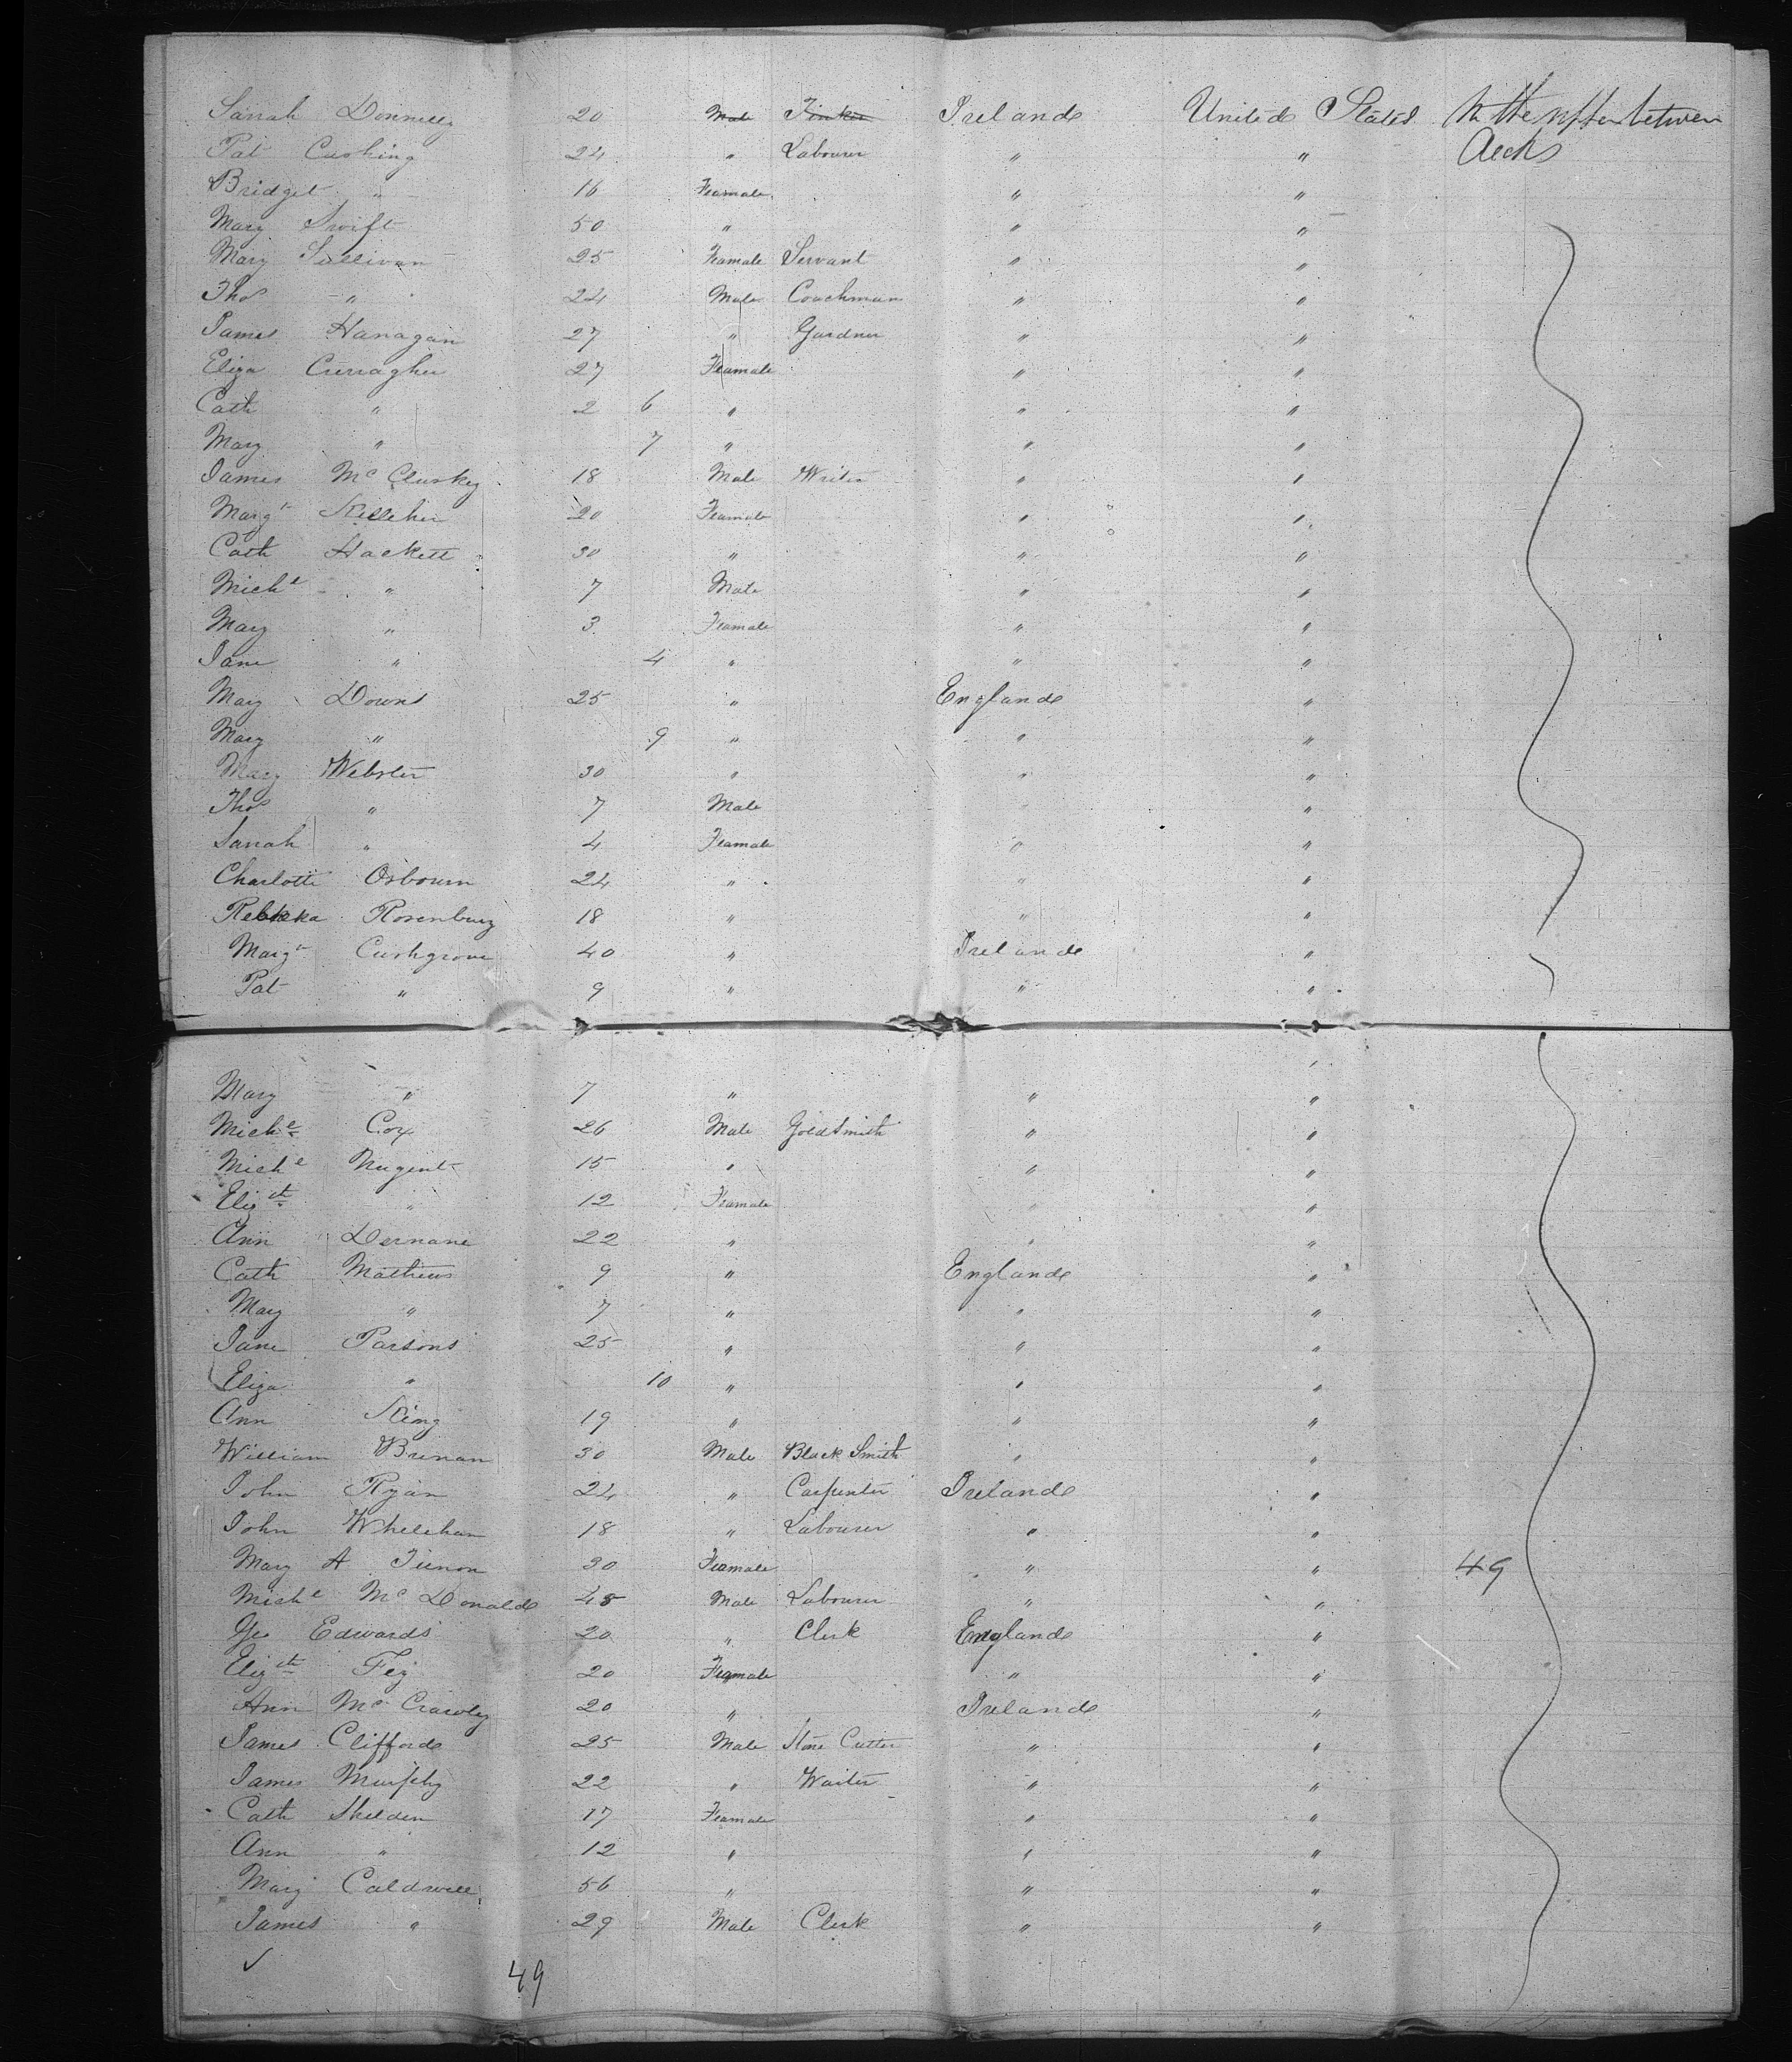 Sarah Donnelly 20 Male Tinker Irelande Unitede States In the upper between
Pat Cushing 24 " Labourer " " decks
Bridget " 16 Feamale " "
Mary Swift 50 " " "
Mary Sullivan 25 Feamale Servant " "
Thos " 24 Male Coachman " "
James Hanagan 27 " Gardner " "
Eliza Curragher 27 Feamale " "
Cath " 2 6 " " "
Mary " 7 " " "
James Mc Cluskey 18 Male Writer " "
Margt Kelleher 20 Feamale " "
Cath Hackett 30 " " "
Michl " 7 Male " "
Mary " 3 Feamale " "
Jane " 4 " " "
Mary Downs 25 " Englande "
Mary " 9 " " "
Mary Webster 30 " " "
Thos " 7 Male " "
Sarah " 4 Feamale " "
Charlotte Osbourn 24 " " "
Rebekka Rosenburg 18 " " "
Margt Cushgrove 40 " Irelande "
Pat " 9 " " "
"
Mary " 7 " " "
Michl Cox 26 Male GoldSmith " "
Michl Nugent 15 " " "
Elizth " 12 Feamale " "
Ann Dernane 22 " " "
Cath Mathews 9 " Englande "
Mary " 7 " " "
Jane Parsons 25 " " "
Eliza " 10 " " "
Ann King 19 " " "
William Brenan 30 Male Black Smith " "
John Ryan 24 " Carpenter Irelande "
John Whelehan 18 " Labourer " "
Mary A 30 Feamale " " 49
Michl Mc Donalde 45 Male Labourer " "
Geo Edwards 20 " Clerk Englande "
Elizth Fey 20 Feamale " "
Ann Mc Crawley 20 " Irelande "
James Clifforde 25 Male Stone Cutter " "
James Murphy 22 " Waiter " "
Cath Shelden 17 Feamale " "
Ann " 12 " " "
Mary Caldwell 56 " " "
James " 29 Male Clerk " "
49